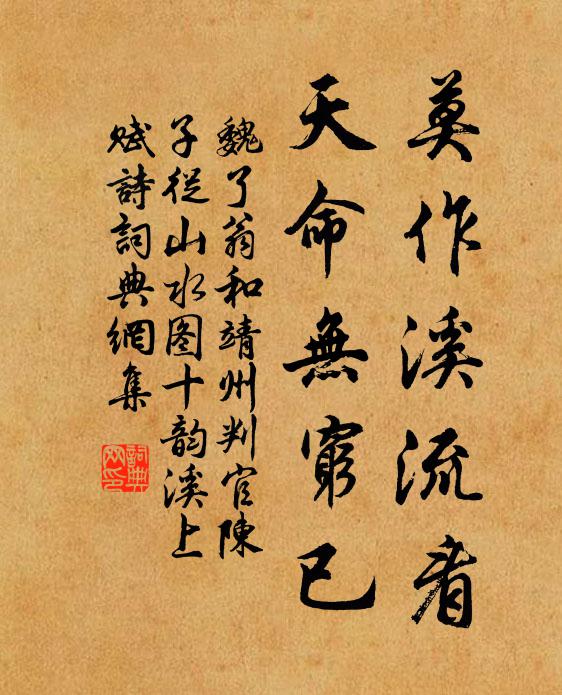 莫作溪流看
天命無窮已
魏了翁和靖州判官陳
子從山水图十韵溪上
赋詩詞典網集
詞典網印